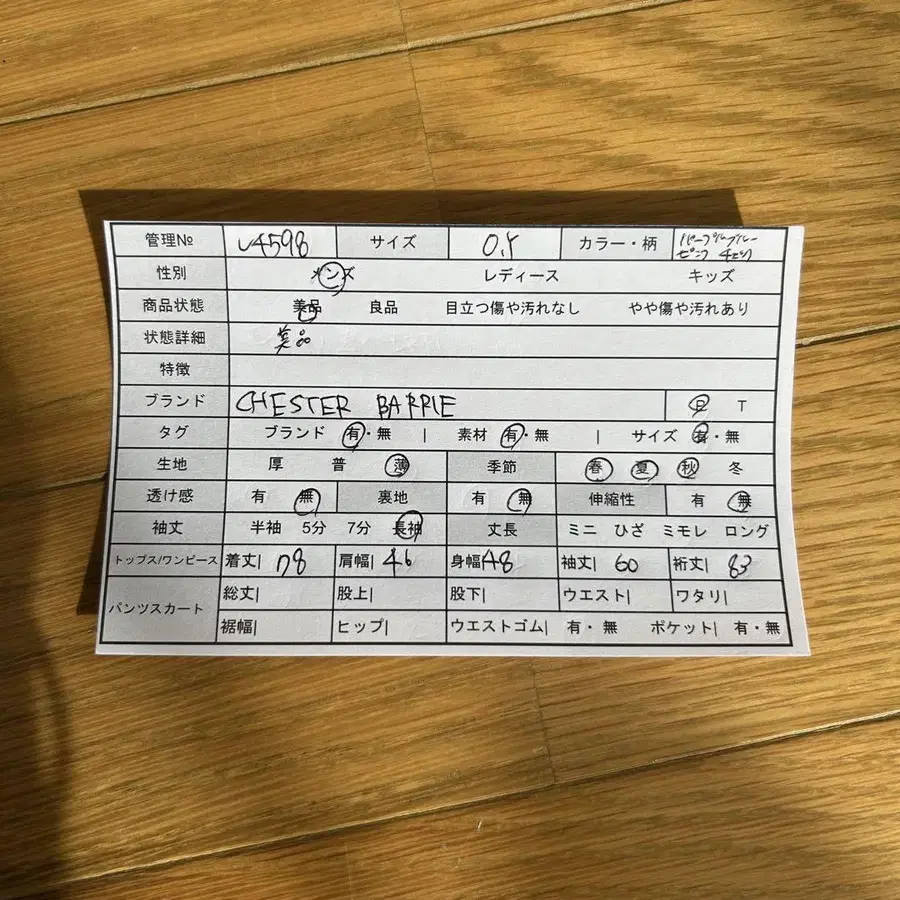 管理№ 4598 サイズ カラー・柄 パープルブルー
ピンク チェック
性別 メンズ レディース キッズ
商品状態 美品 良品 目立つ傷や汚れなし やや傷や汚れあり
状態詳細 美品
特徴
ブランド CHESTER BARRIE 日 T
タグ ブランド 有・無 | 素材 有・無 | サイズ 有・無
生地 厚 普 薄 季節 春 夏 秋 冬
透け感 有 無 裏地 有 無 伸縮性 有 無
袖丈 半袖 5分 7分 長袖 丈長 ミニ ひざ ミモレ ロング
トップス/ワンピース 着丈| 78 肩幅| 46 身幅| 48 袖丈| 60 裄丈| 83
パンツスカート 総丈| 股上| 股下| ウエスト| ワタリ|
裾幅| ヒップ| ウエストゴム| 有・無 ポケット| 有・無